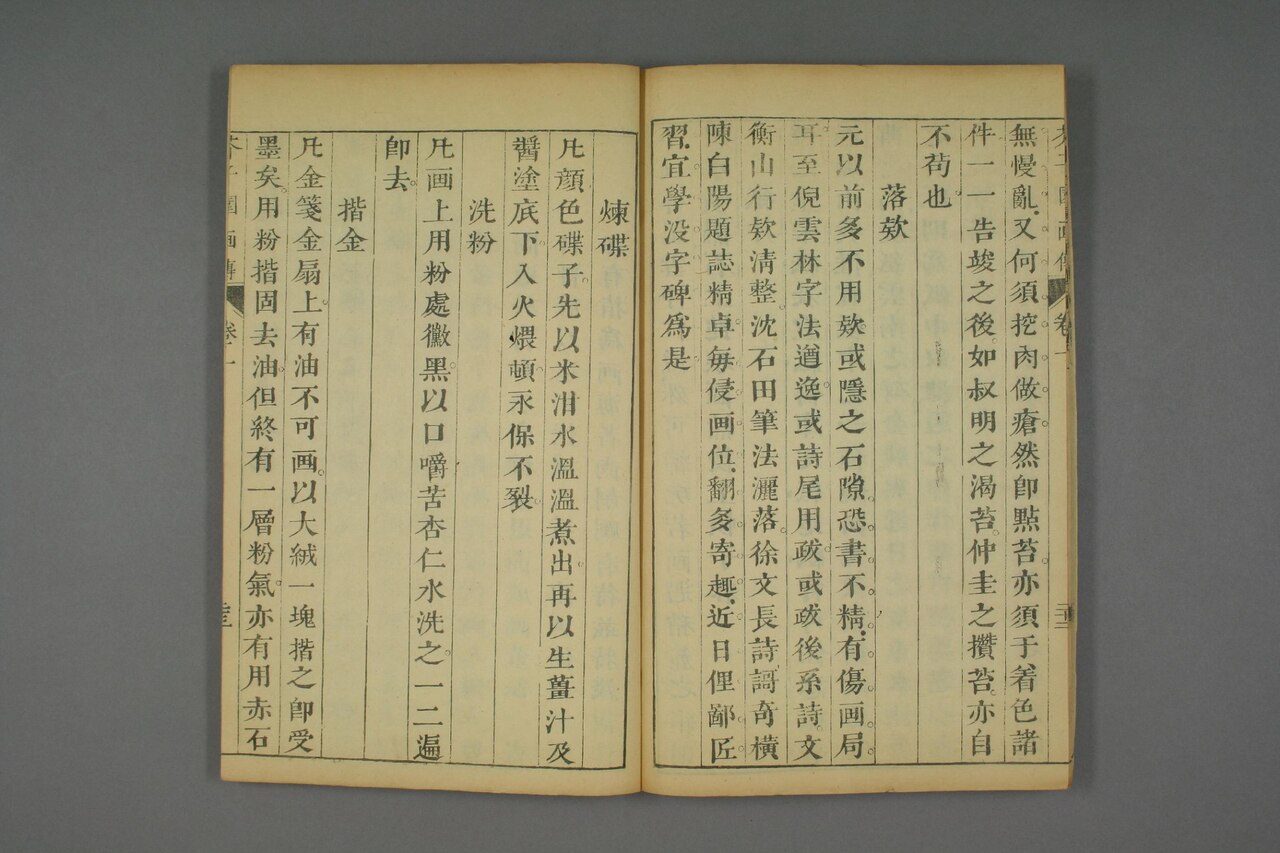 無慢亂又何須挖肉做瘡然卽點苔亦須于着色諸
件一一告竣之後如叔明之渴苔仲圭之攢苔亦自
不苟也
落欵
元以前多不用欵或隱之石隙恐書不精有傷画局
耳至倪雲林字法遒逸或詩尾用跋或跋後系詩文
衡山行欵清整沈石田筆法灑落徐文長詩謌奇橫
陳白陽題誌精卓每侵画位翻多寄趣近日俚鄙匠
習宜學没字碑爲是
煉碟
凡顔色碟子先以米泔水溫溫煮出再以生薑汁及
醬塗底下入火煨頓永保不裂
洗粉
凡画上用粉處黴黑以口嚼苦杏仁水洗之一二遍
卽去
揩金
凡金箋金扇上有油不可画以大絨一塊揩之卽受
墨矣用粉揩固去油但終有一層粉氣亦有用赤石
卷一